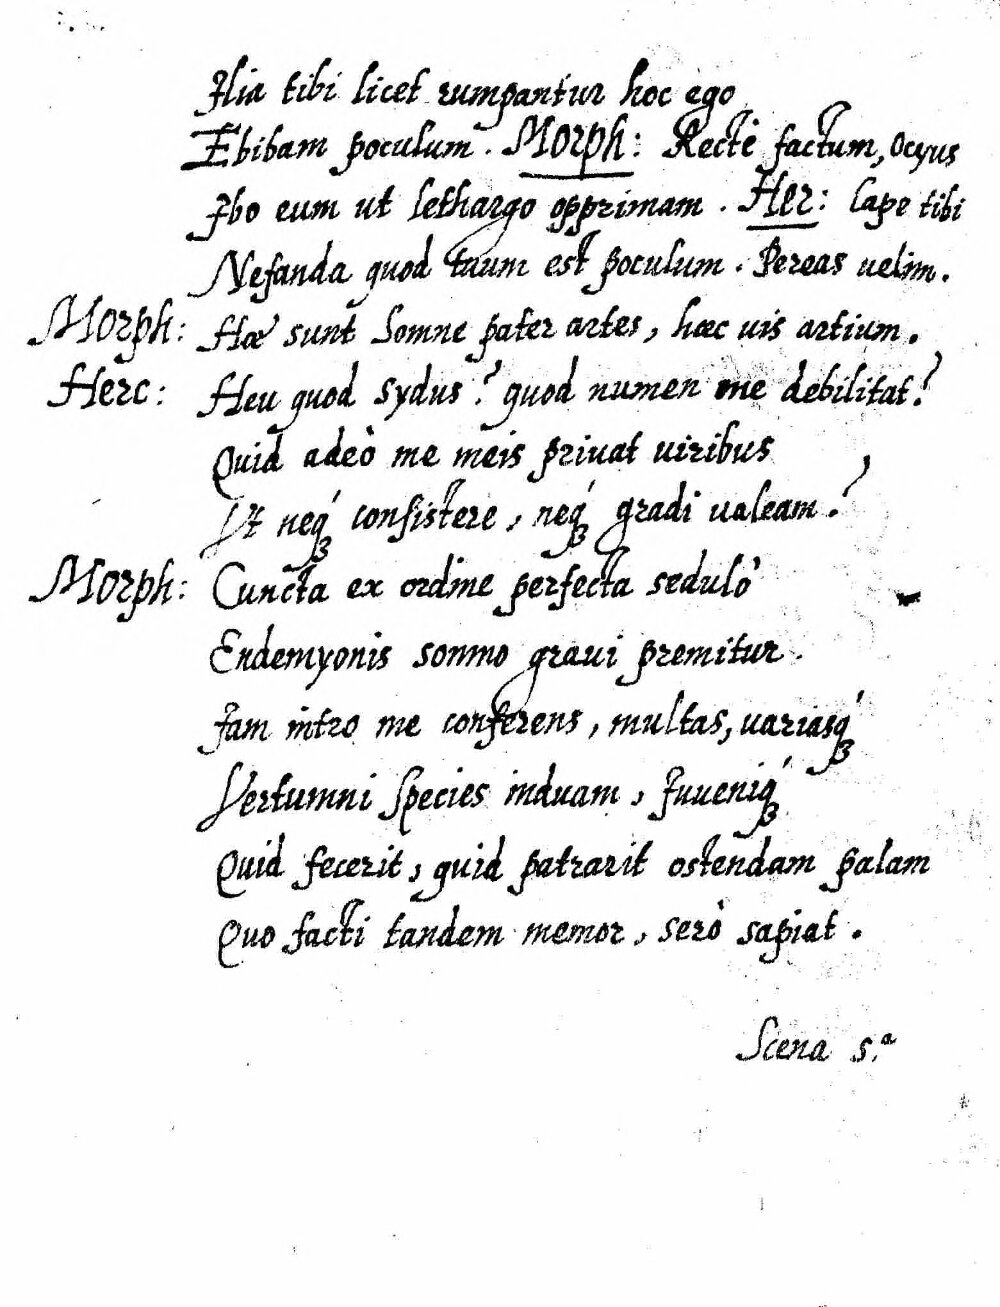 Ilia tibi licet rumpantur hoc ego
Ebibam poculum. Morph: Recte factum, ocyus
Ibo eum ut lethargo opprimam. Her: Cape tibi
Nefanda quod tuum est poculum. Pereas uelim.
Morph: Hæ sunt Somne pater artes, hæc uis artium.
Herc: Heu quod sydus? quod numen me debilitat?
Quid adeò me meis priuat uiribus
Ut neq́ꝫ consistere, neq́ꝫ gradi ualeam?
Morph: Cuncta ex ordine perfecta sedulò
Endemyonis somno graui premitur.
Iam intro me conferens, multas, uariasq́ꝫ
Vertumni species induam, Iuueniq́ꝫ
Quid fecerit, quid patrarit ostendam palam
Quo facti tandem memor, serò sapiat.
Scena 5.ª